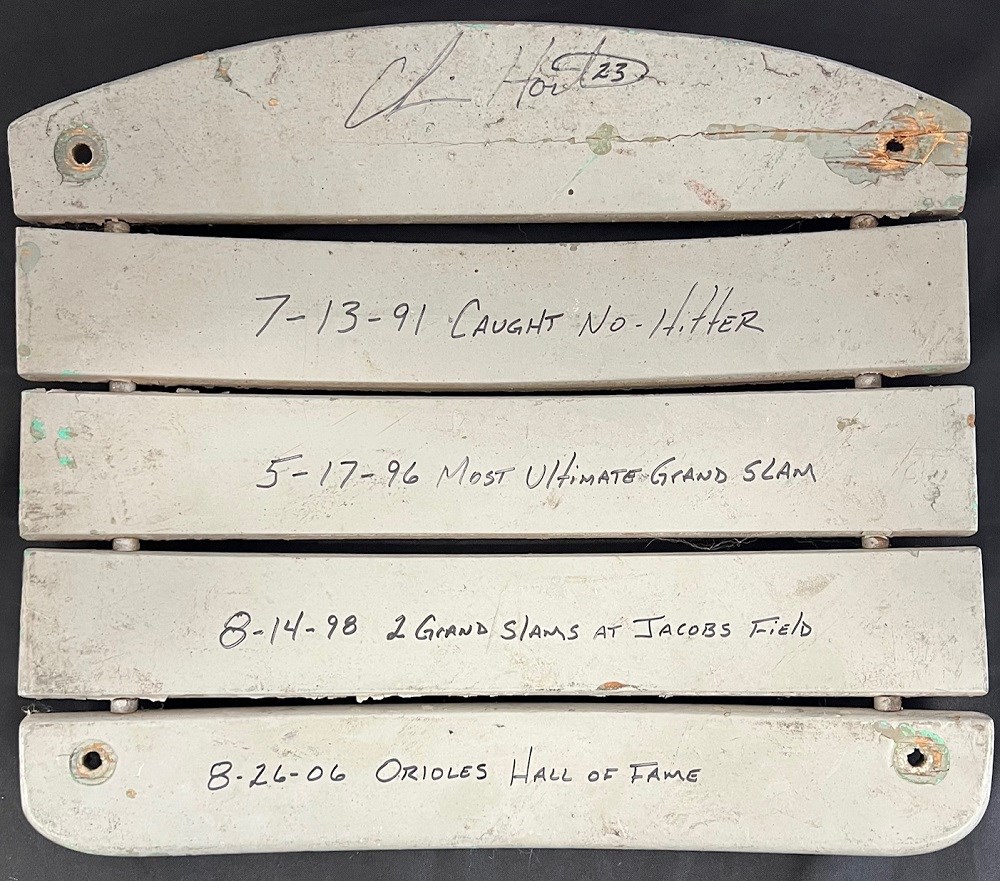 Chris Hoiles 23
7-13-91 CAUGHT NO-HITTER
5-17-96 MOST ULTIMATE GRAND SLAM
8-14-98 2 GRAND SLAMS AT JACOBS FIELD
8-26-06 ORIOLES HALL OF FAME